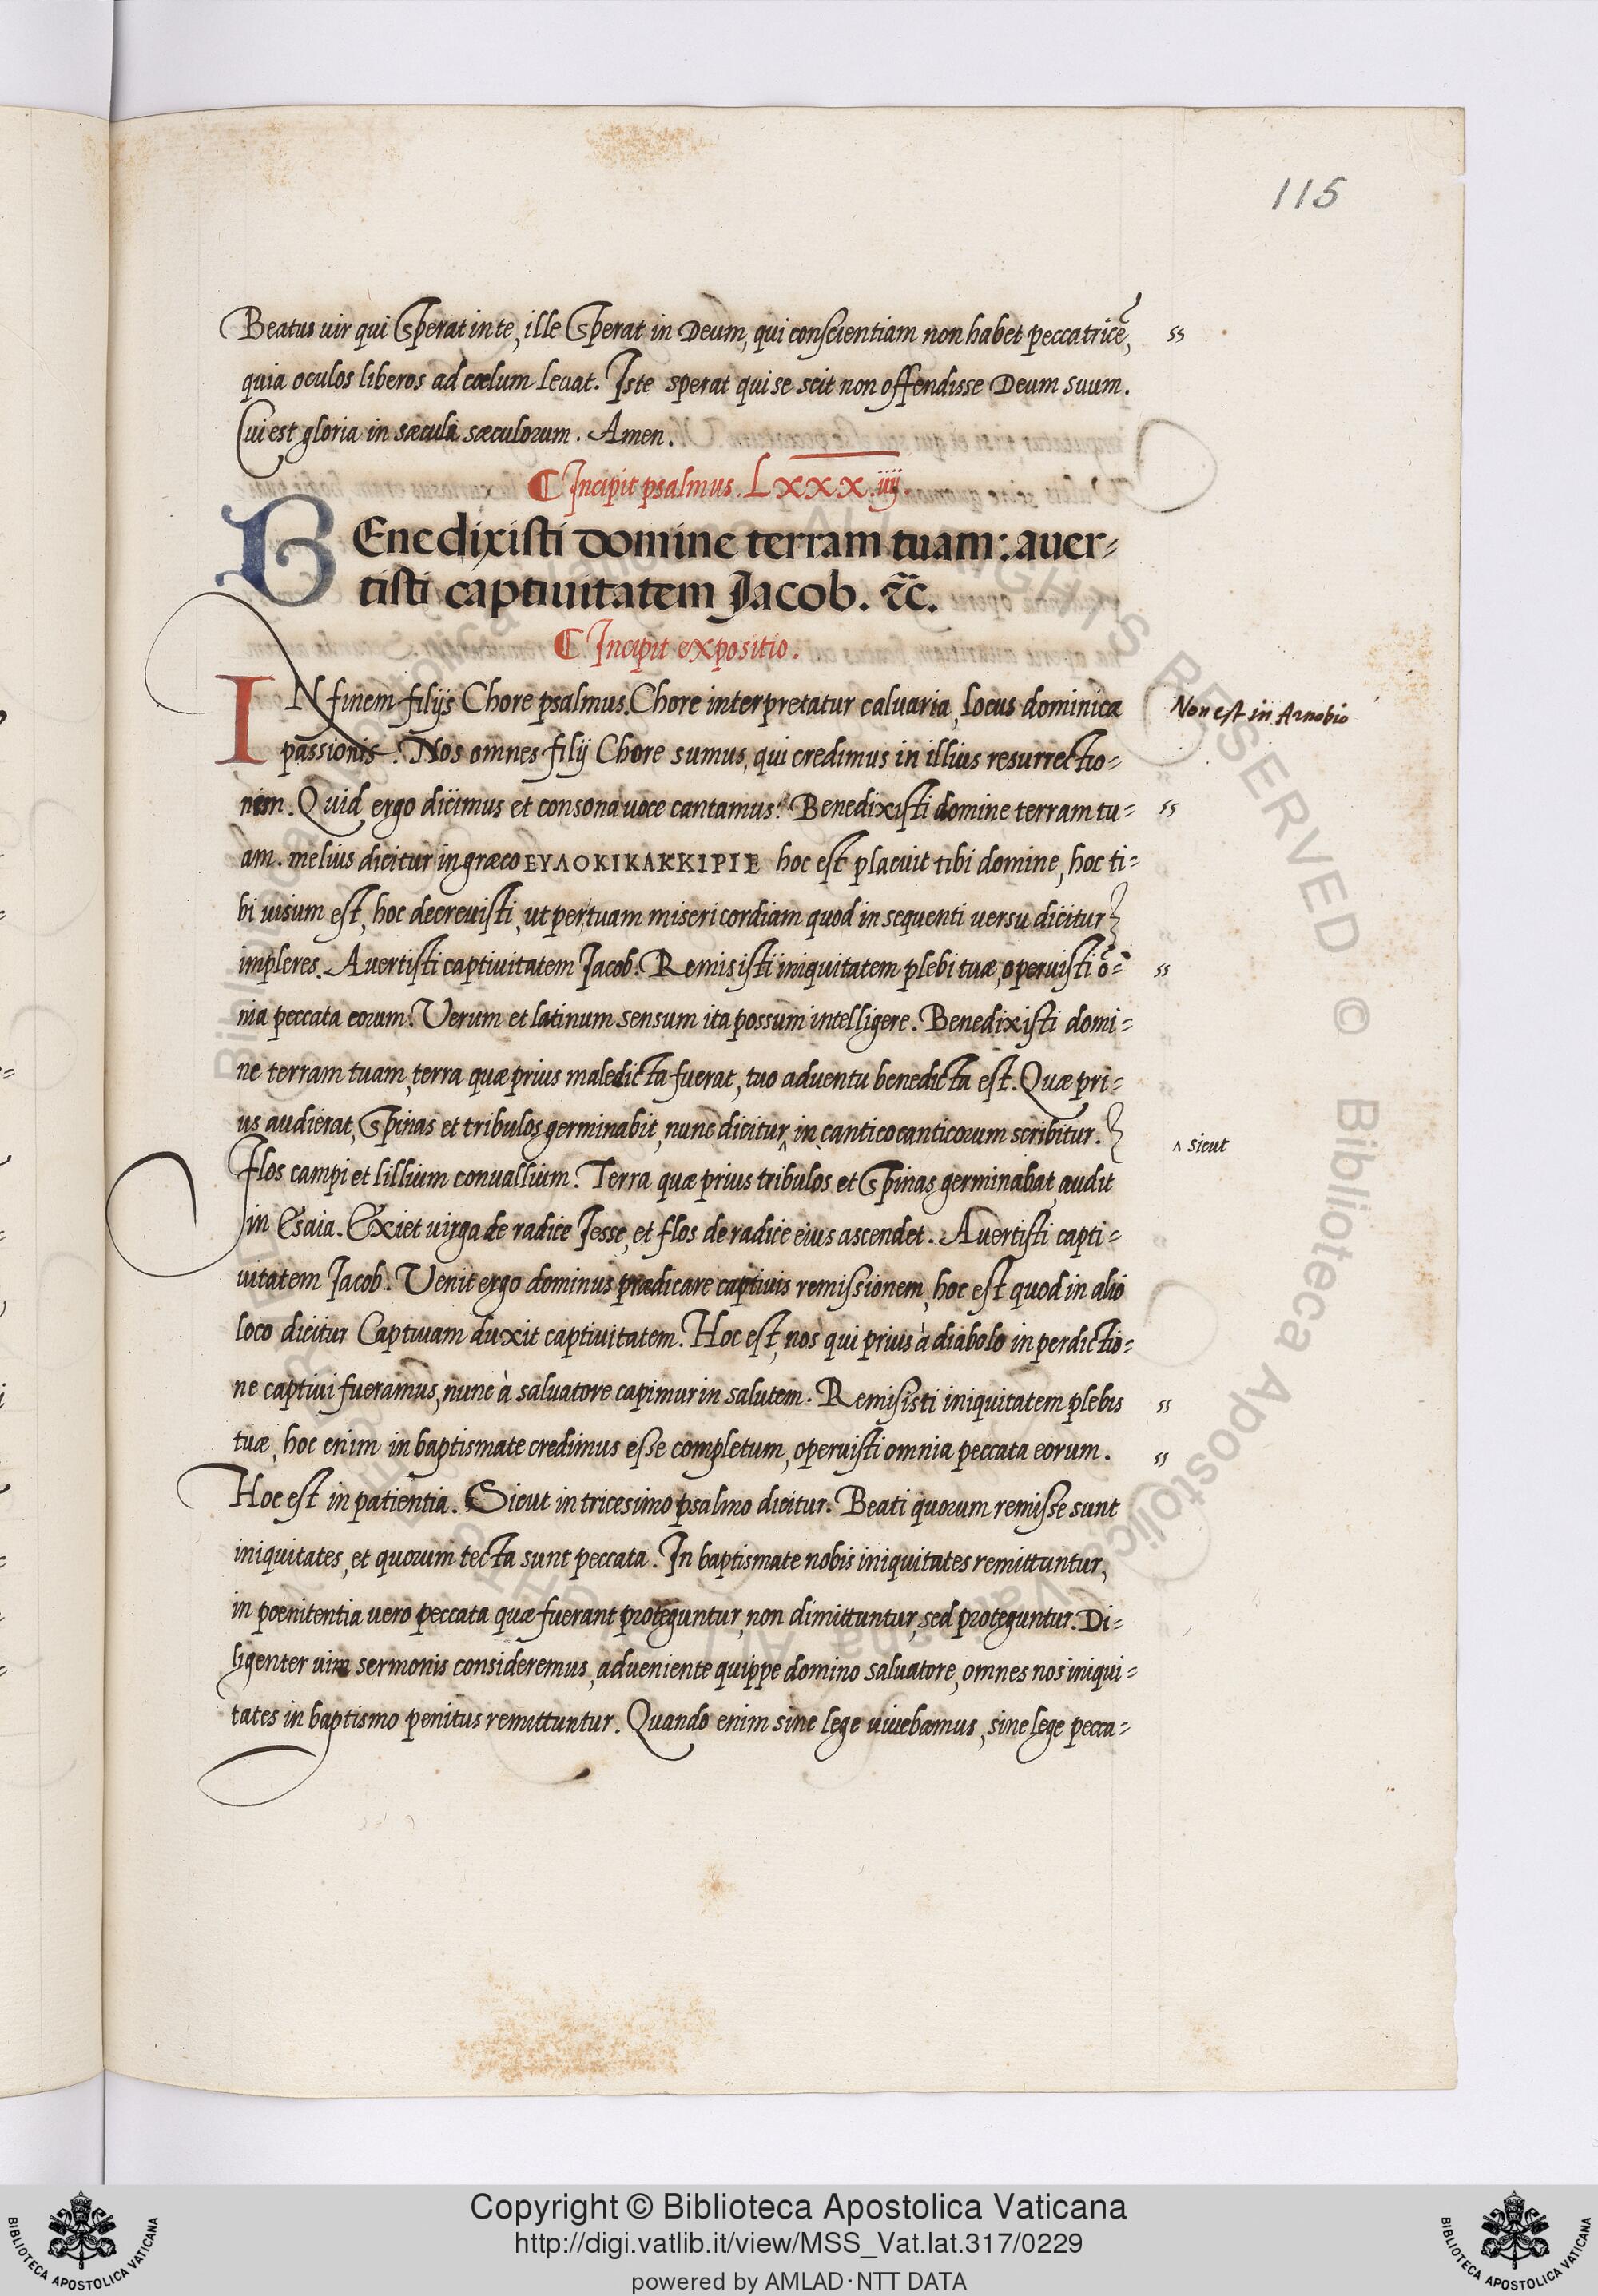 115
Beatus uir qui sperat in te, ille sperat in Deum, qui conscientiam non habet peccatricẽ,
quia oculos liberos ad cœlum leuat. Iste sperat qui se scit non offendisse Deum suum.
Cui est gloria in sæcula sæculorum. Amen.
¶ Incipit psalmus. Lxxx.iiij
BEnedixisti domine terram tuam: auer=
tisti captiuitatem Jacob. ⁊c̃.
¶ Incipit expositio.
IN finem filijs Chore psalmus. Chore interpretatur caluaria, Locus dominicæ
Non est in Arnobio
passionis. Nos omnes filij Chore sumus, qui credimus in illius resurrectio=
nem. Quid ergo dicimus et consona uoce cantamus? Benedixisti domine terram tu=
am. melius dicitur in græco ΕΥΛΟΚΙΚΑΚΚΙΡΙΕ hoc est placuit tibi domine, hoc ti=
bi uisum est, hoc decreuisti, ut per tuam misericordiam quod in sequenti uersu dicitur
impleres. Auertisti captiuitatem Jacob. Remisisti iniquitatem plebi tuæ, operuisti õ=
nia peccata eorum. Verum et latinum sensum ita possum intelligere. Benedixisti domi=
ne terram tuam, terra quæ prius maledicta fuerat, tuo aduentu benedicta est. Quæ pri=
us audierat, Spinas et tribulos germinabit, nunc dicitur ^ in cantico canticorum scribitur.
^ sicut
Flos campi et lillium conuallium. Terra quæ prius tribulos et Spinas germinabat, audit
in Esaia. Exiet uirga de radice Jesse, et flos de radice eius ascendet. Auertisti capti=
uitatem Jacob. Venit ergo dominus prædicare captiuis remissionem, hoc est quod in alio
loco dicitur Captiuam duxit captiuitatem. Hoc est, nos qui prius à diabolo in perdictio=
ne captiui fueramus, nunc à saluatore capimur in salutem. Remisisti iniquitatem plebis
tuæ, hoc enim in baptismate credimus esse completum, operuisti omnia peccata eorum.
Hoc est in patientia. Sicut in tricesimo psalmo dicitur. Beati quorum remisse sunt
iniquitates, et quorum tecta sunt peccata. In baptismate nobis iniquitates remittuntur,
in pœnitentia uero peccata quæ fuerant proteguntur, non dimittuntur, sed proteguntur. Di=
ligenter uim sermonis consideremus, adueniente quippe domino saluatore, omnes nos iniqui=
tates in baptismo penitus remittuntur. Quando enim sine lege uiuebamus, sine lege pecca=
Copyright © Biblioteca Apostolica Vaticana
http://digi.vatlib.it/view/MSS_Vat.lat.317/0229
powered by AMLAD·NTT DATA
BIBLIOTECA APOSTOLICA VATICANA
BIBLIOTECA APOSTOLICA VATICANA